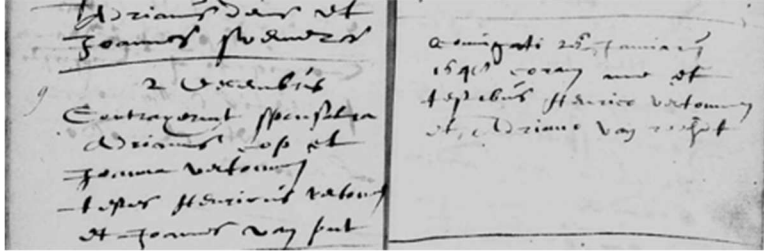 Adrianus Deus et
Joannes Swevers
2 Decembris
9
Contraxerunt sponsalia
Adrianus Cop et
Joanna vertomen
testes Henricus vertomen
et Joannes van put
Coniugati 25 Januarij
coram me et
testibus Henrico vertommen
et Adriano van